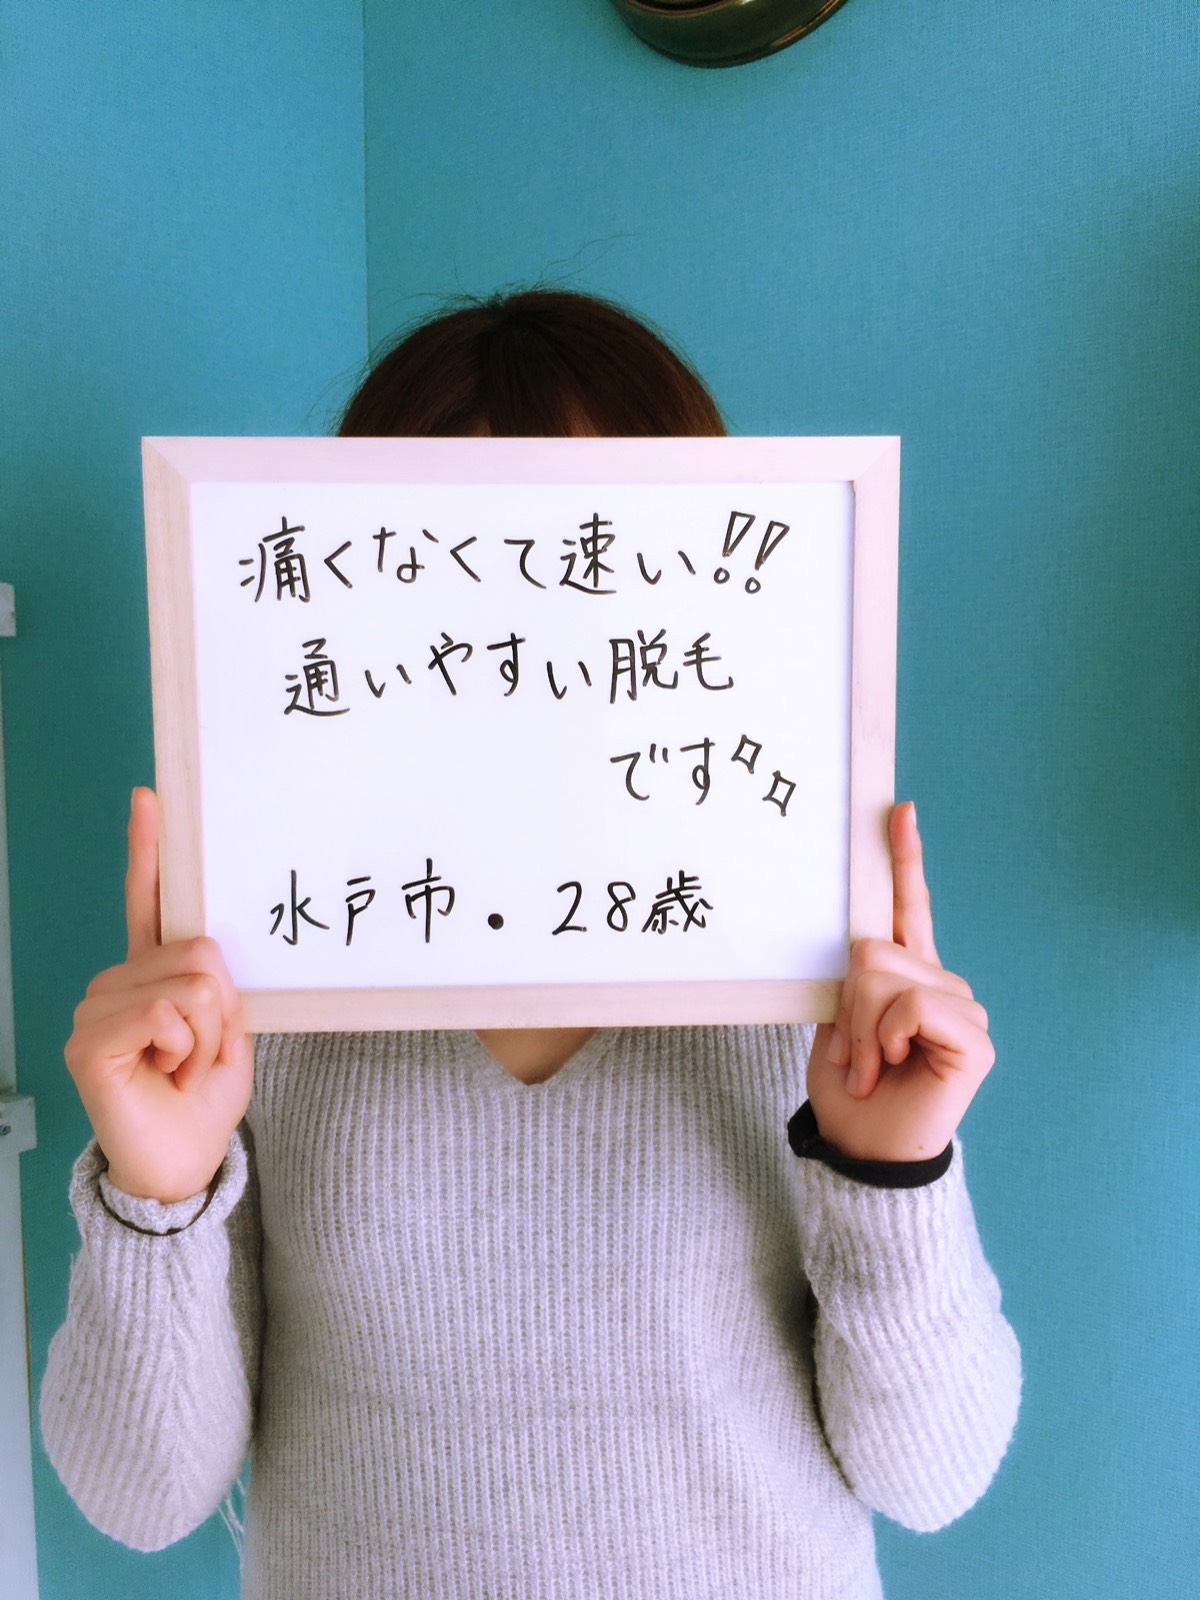 痛くなくて速い!!
通いやすい脱毛
です
水戸市・28歳